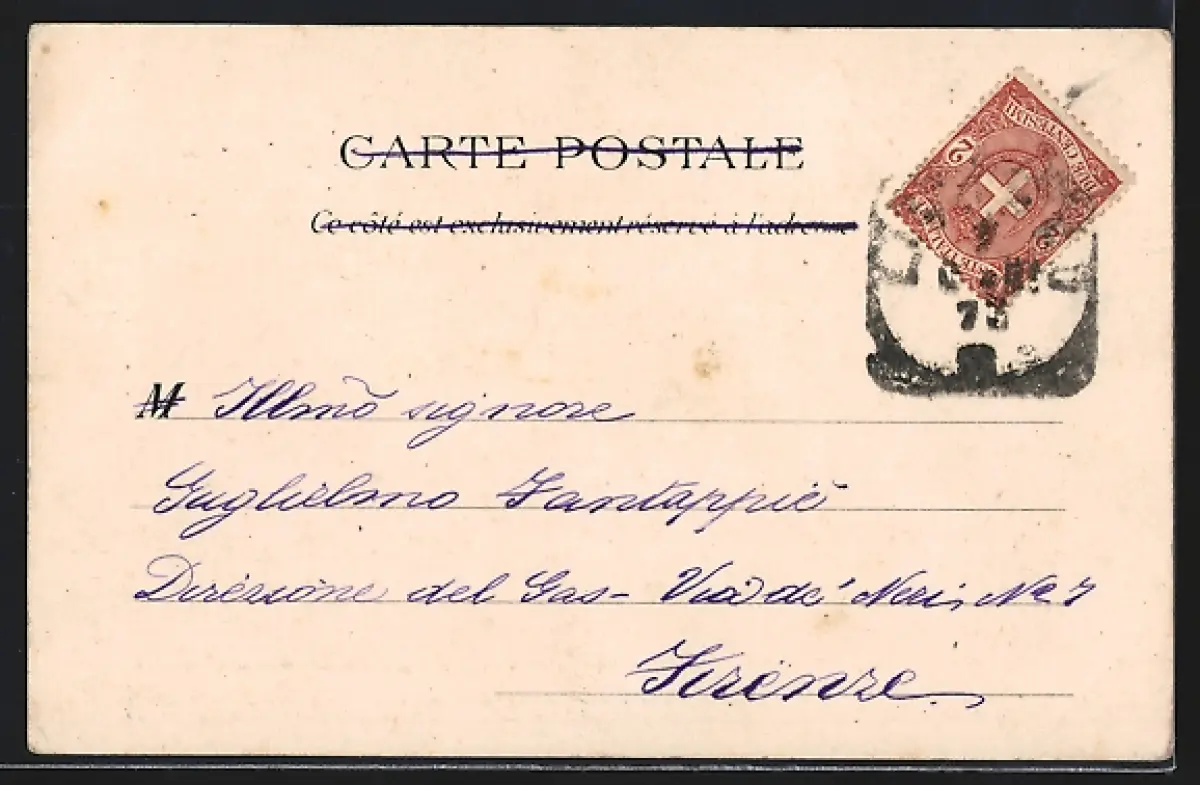 CARTE POSTALE
Ce côté est exclusivement réservé à l'adresse
DUE CENTESIMI
2
2
75
M Illmõ signore
Guglielmo Santappiè
Direzione del Gas - Via de' Neri, No 7
Firenze